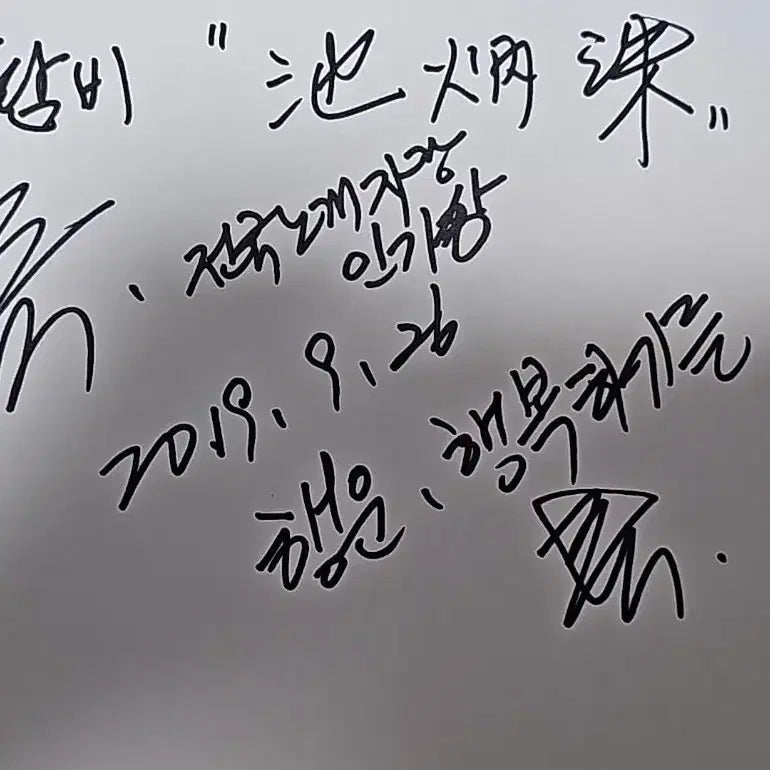 담비 "池炳洙"
전국노래자랑
인기상
2019. 9. 26
행운, 행복하기를